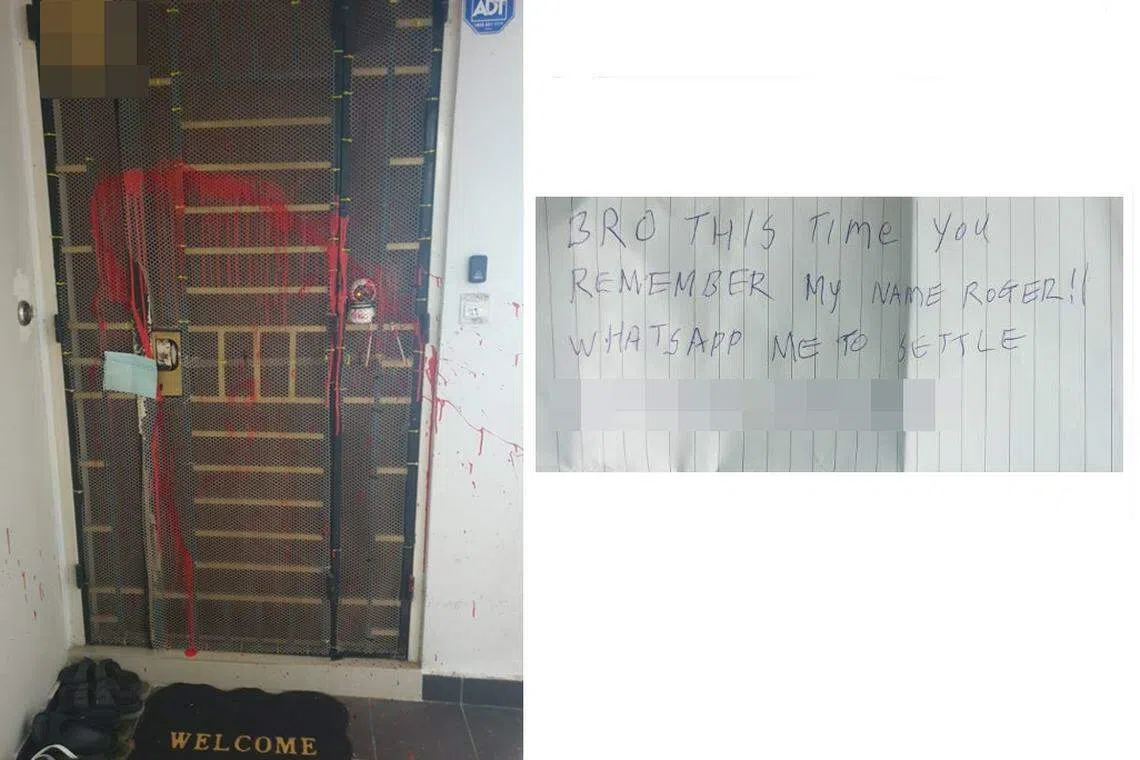 ADT
WELCOME
BRO THIS TIME YOU
REMEMBER MY NAME ROGER!!
WHATSAPP ME TO SETTLE